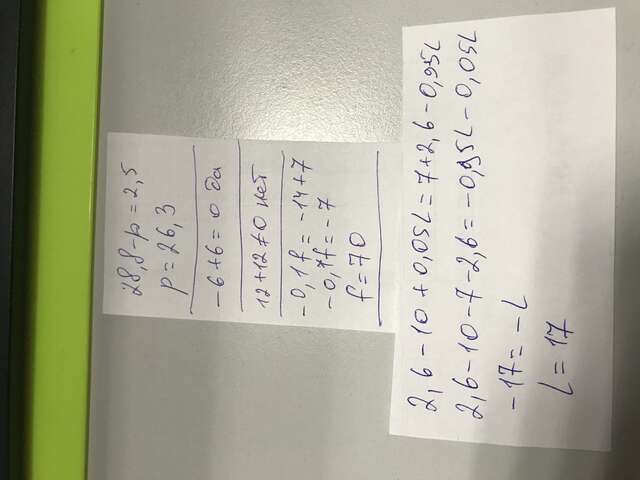 28,8-p=2,5
p=26,3
-6+6=0 да
12+12≠0 нет
-0,1f=-14+7
-0,1f=-7
f=70
2,6-10+0,05L=7+2,6-0,95L
2,6-10-7-2,6=-0,95L-0,05L
-17=-L
L=17